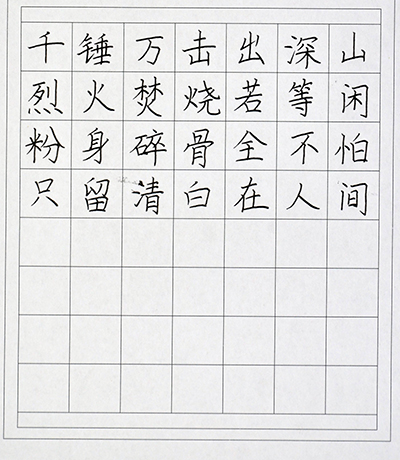 千锤万击出深山
烈火焚烧若等闲
粉身碎骨全不怕
只留清白在人间